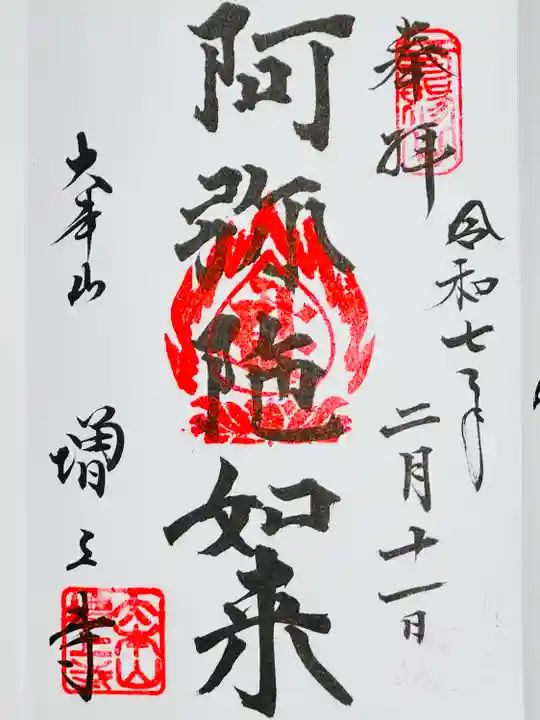 奉拝
令和七年
二月十一日
阿弥陀如来
大本山 増上寺